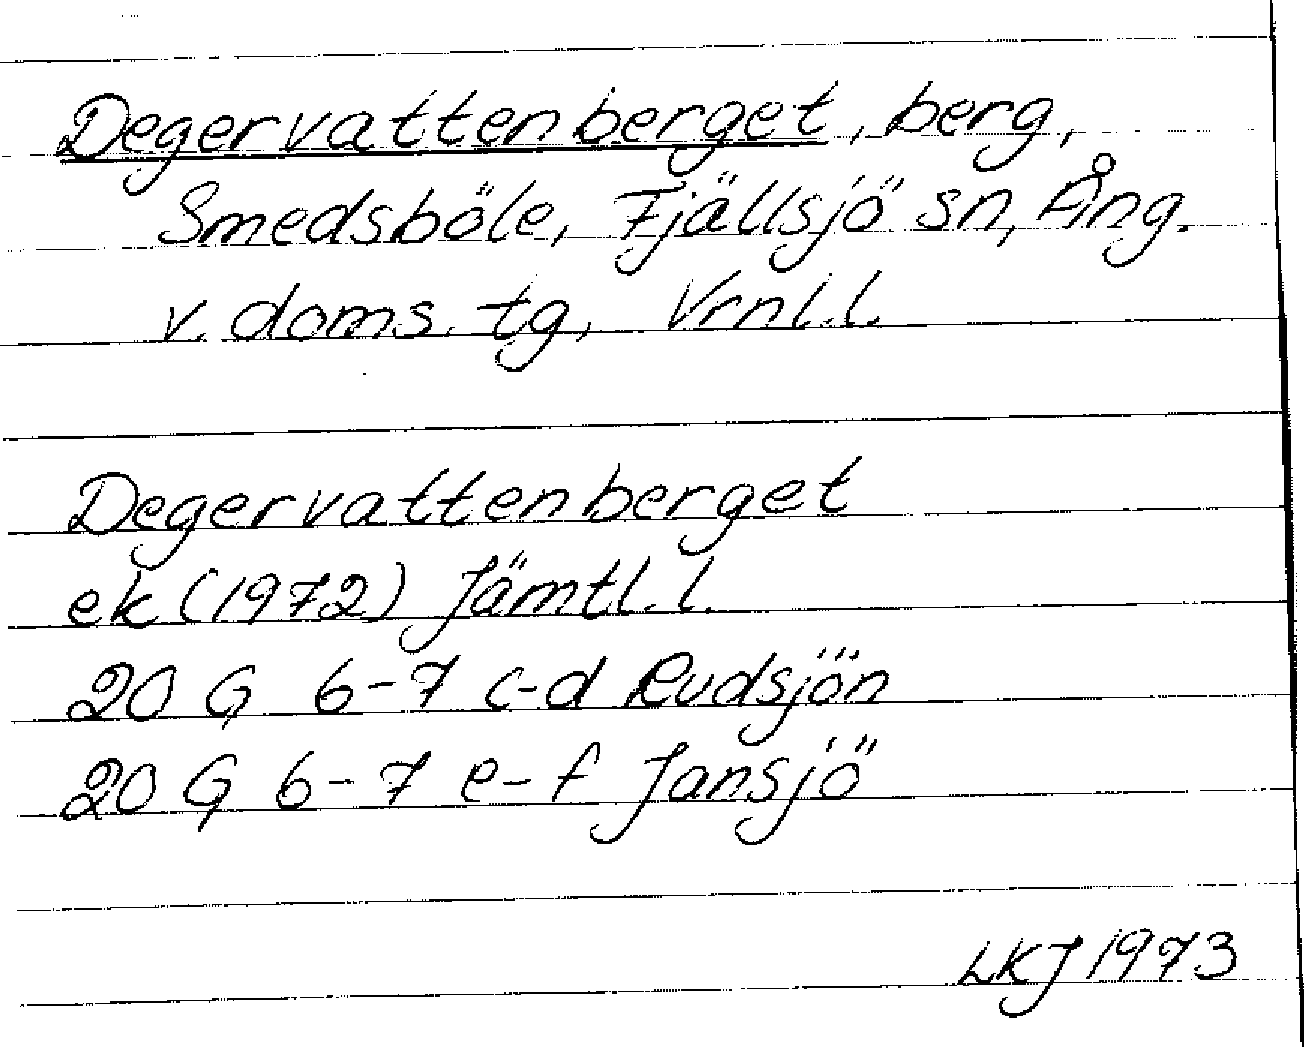 Degervattenberget, berg,
Smedsböle, Fjällsjö sn, Ång.
v. doms. tg, Vrnl.l.
Degervattenberget
ek (1972) Jämtl.l.
20 G 6-7 c-d Rudsjön
20 G 6-7 e-f Jansjö
LKJ 1973